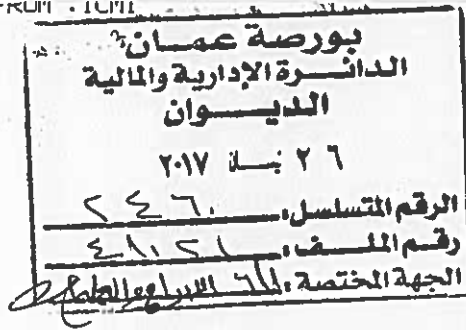 FROM :ICMI
بورصة عمان
الدائرة الإدارية والمالية
الديوان
٢٦ نيسان ٢٠١٧
الرقم المتسلسل: ٢٤٦٠
رقم الملف: ٤١٠٢١
الجهة المختصة: